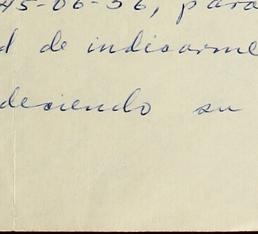 45-06-56, para
d de indicarme
deciendo su